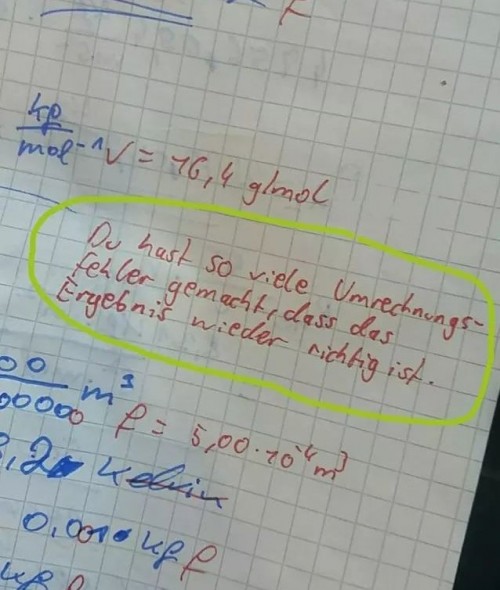 f
kg
mol⁻¹ √ = 16,4 g/mol
Du hast so viele Umrechnungs-
fehler gemacht, dass das
Ergebnis wieder richtig ist.
00
00000 m³ f = 5,00·10⁻⁴m³
,2 Kelvin
0,001 kg f
kg f